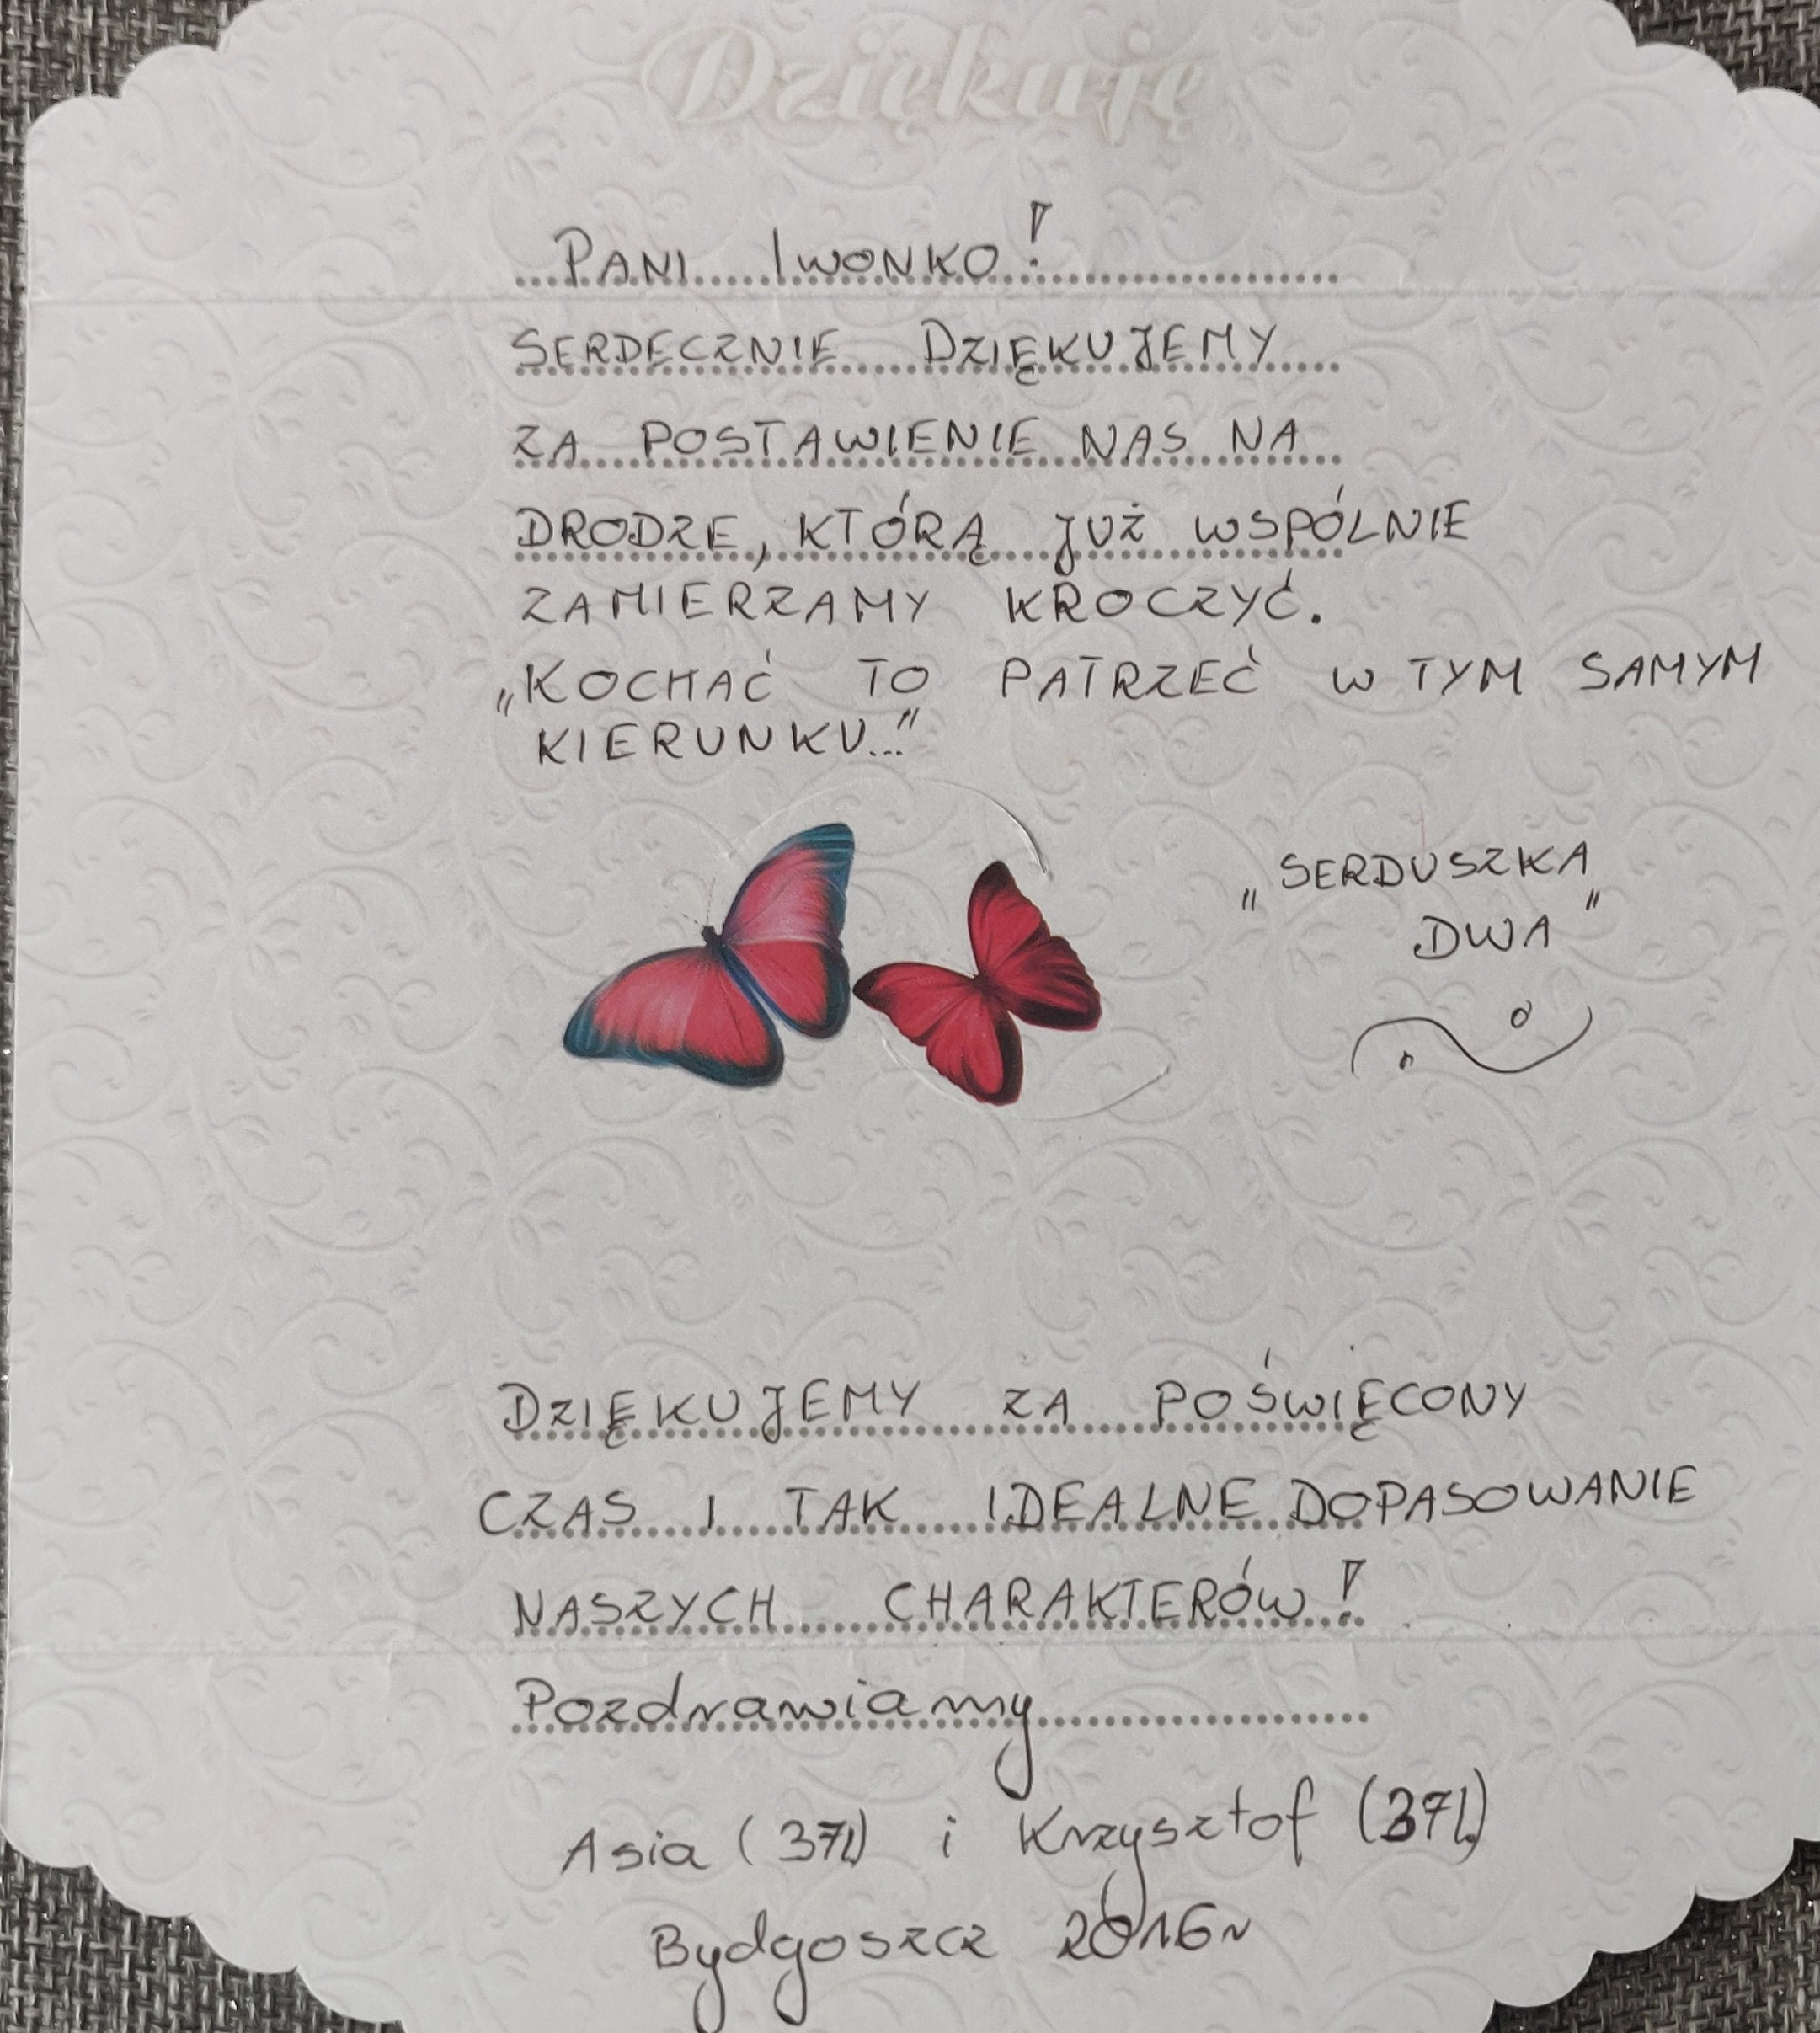 Dziękuję
PANI IWONKO!
SERDECZNIE DZIĘKUJEMY
ZA POSTAWIENIE NAS NA
DRODZE, KTÓRĄ JUŻ WSPÓLNIE
ZAMIERZAMY KROCZYĆ.
„KOCHAĆ TO PATRZEĆ W TYM SAMYM
KIERUNKU..."
„SERDUSZKA
DWA"
DZIĘKUJEMY ZA POŚWIĘCONY
CZAS I TAK IDEALNE DOPASOWANIE
NASZYCH CHARAKTERÓW!
Pozdrawiamy
Asia (37l.) i Krzysztof (37l.)
Bydgoszcz 2016r